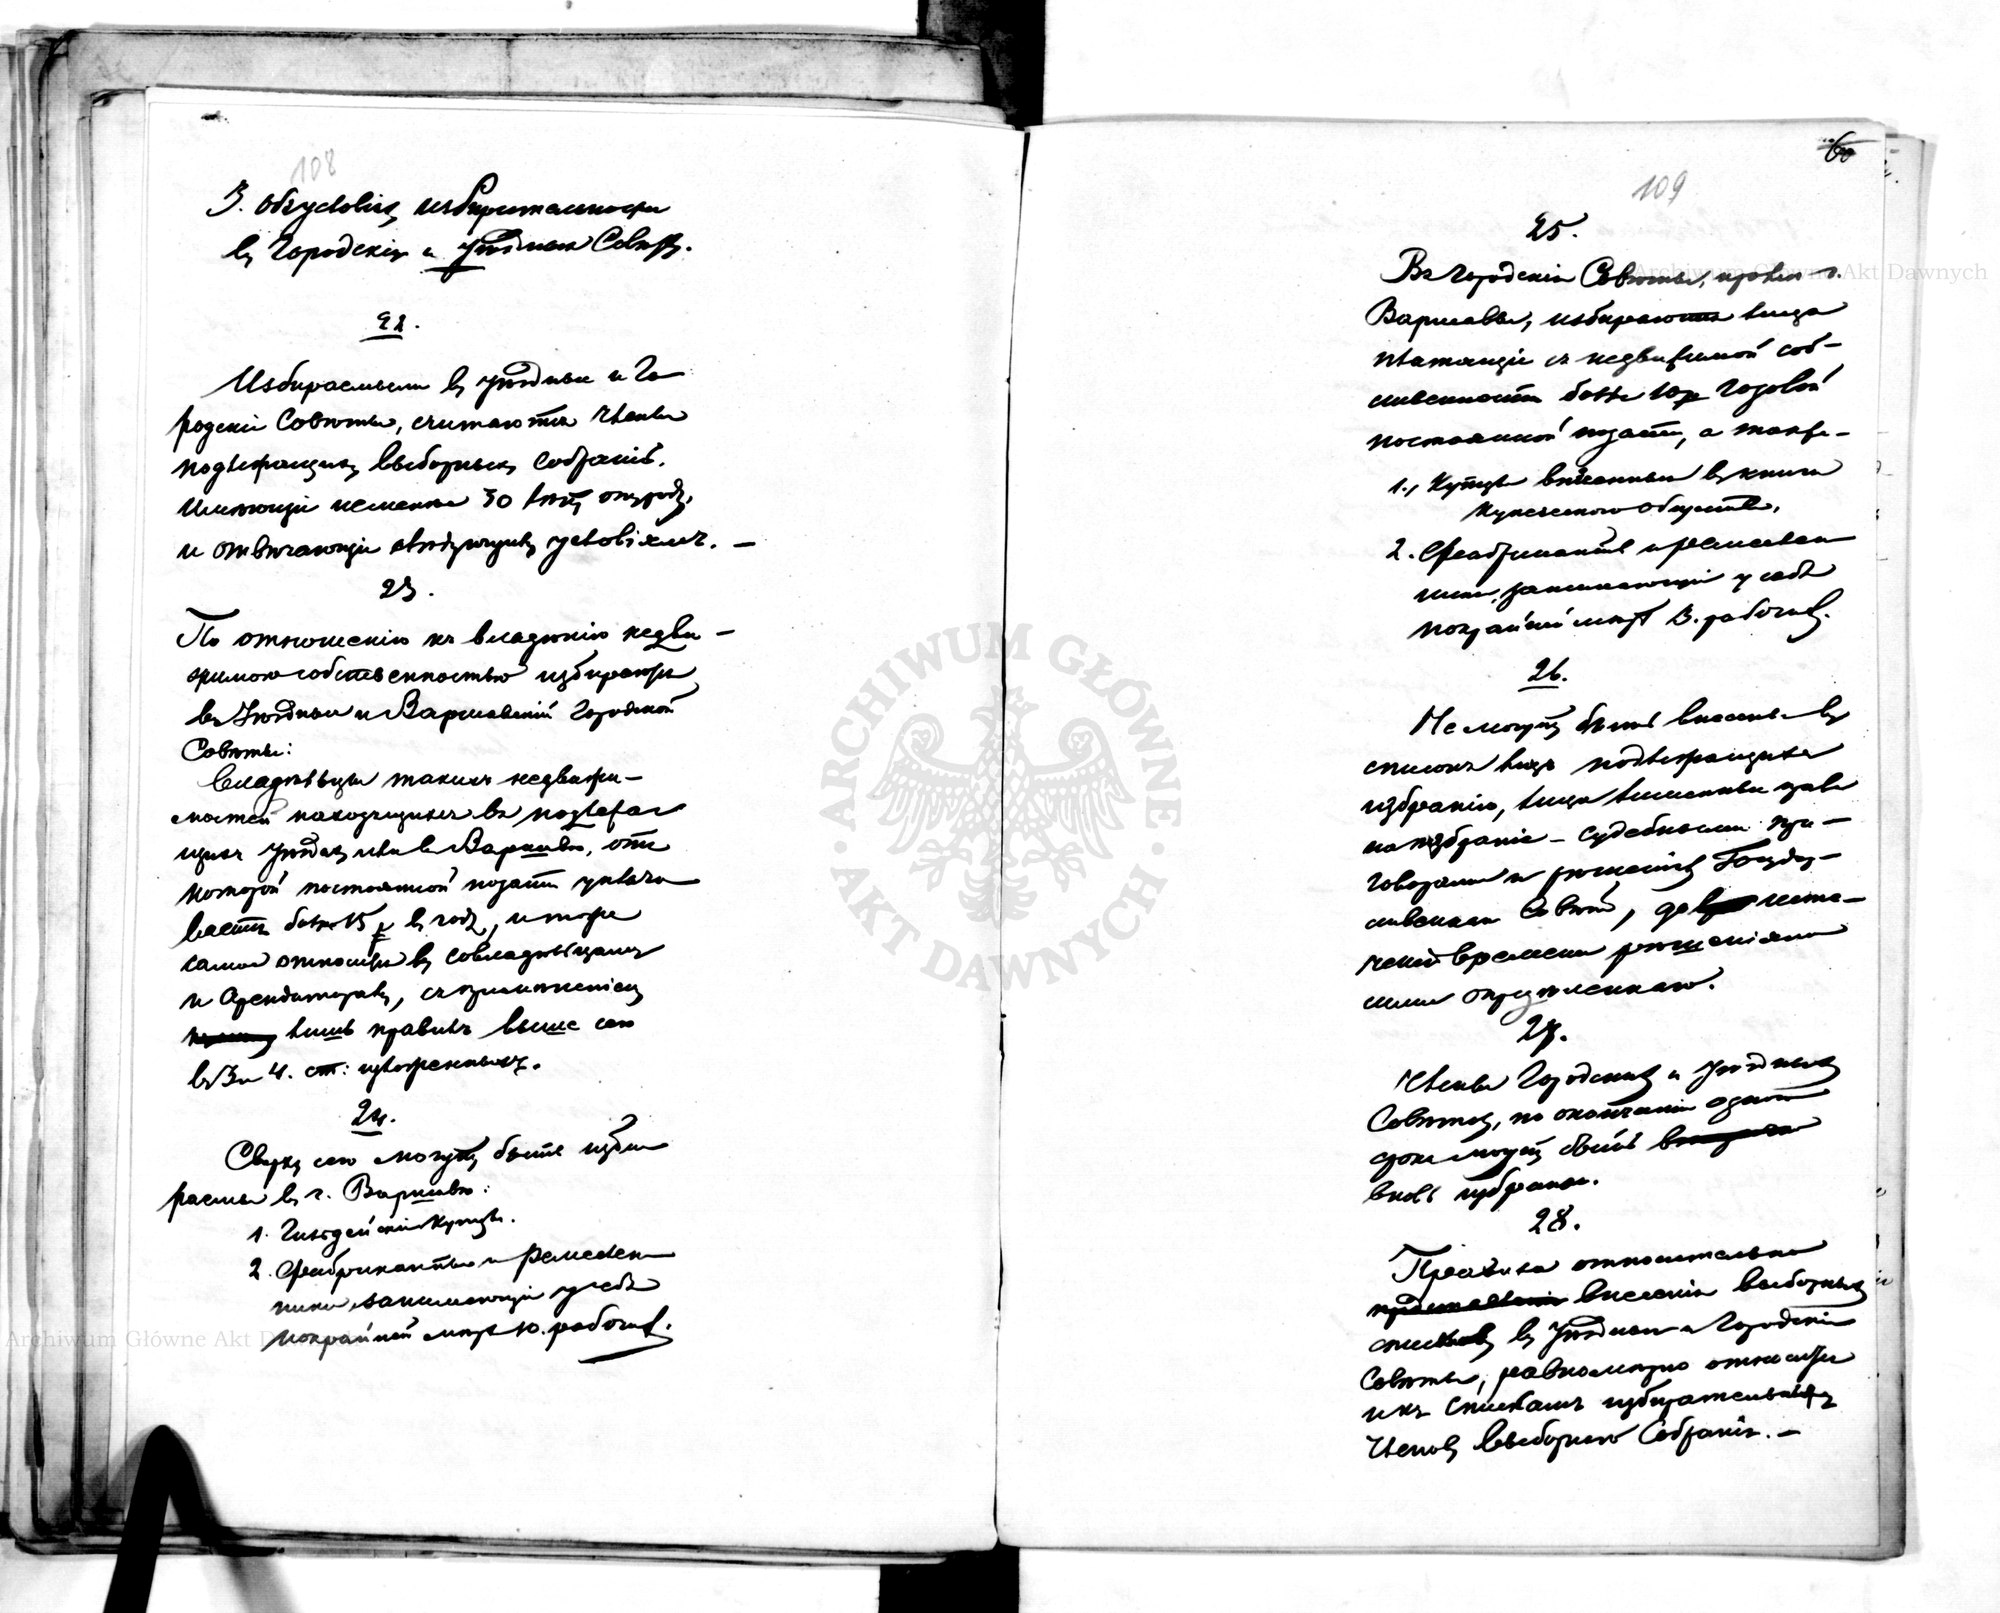 108
3. Объ условіяхъ избирательности
въ Городскіе и Уѣздные Совѣты.
22.
Избираемыми въ уѣздные и Го-
родскіе Совѣты, считаются члены
подлежащихъ выборныхъ собраній,
Имѣющіе неменѣе 30 лѣтъ отъ роду,
и отвѣчающіе слѣдующимъ условіямъ. —
23.
По отношенію къ владѣнію недви-
жимою собственностью избираются
въ Уѣздные и Варшавскій Городской
Совѣты:
Владѣльцы такихъ недвижи-
мостей находящихся въ подлежа-
щихъ уѣздахъ или въ Варшавѣ, отъ
которой постоянной подати уплачи-
вается болѣе 15 р въ годъ, и тоже
самое относится къ совладѣльцамъ
и Арендаторамъ, съ примѣненіемъ
лишь правилъ выше сего
въ 3 и 4. ст: изложенныхъ.
24.
Сверхъ сего могутъ быть изби-
раемы въ г. Варшавѣ:
1. Гильдейскіе Купцы.
2. Фабриканты и Ремеслен-
ники, занимающіе у себя
покрайней мѣрѣ 10. рабочихъ.
60
109
25.
Въ Городскіе Совѣты, кромѣ г.
Варшавы, избираются лица
платящіе съ недвижимой соб-
ственности болѣе 10 р годовой
постоянной подати, а также-
1., Купцы внесенные въ книги
Купеческаго общества,
2. Фабриканты и ремеслен-
ники, занимающіе у себя
покрайней мѣрѣ 3. рабочихъ.
26.
Не могутъ быть внесены въ
списокъ лицъ подлежащихъ
избранію, лица лишенные права
на избраніе — судебными при-
говорами и рѣшеніемъ Государ-
ственнаго Совѣта, до истe-
ченія времени рѣшеніями
сими опредѣленнаго.
27.
Члены Городскихъ и Уѣздныхъ
Совѣтовъ, по окончаніи одного
срока могутъ быть
вновь избраны.
28.
Правила относительно
внесенія выборныхъ
списковъ въ Уѣздные и Городскіе
Совѣты, равномѣрно относятся
и къ спискамъ избирательныхъ
Членовъ Выборнаго Собранія. —
ARCHIWUM GŁÓWNE AKT DAWNYCH
Archiwum Główne Akt Dawnych
Archiwum Główne Akt D